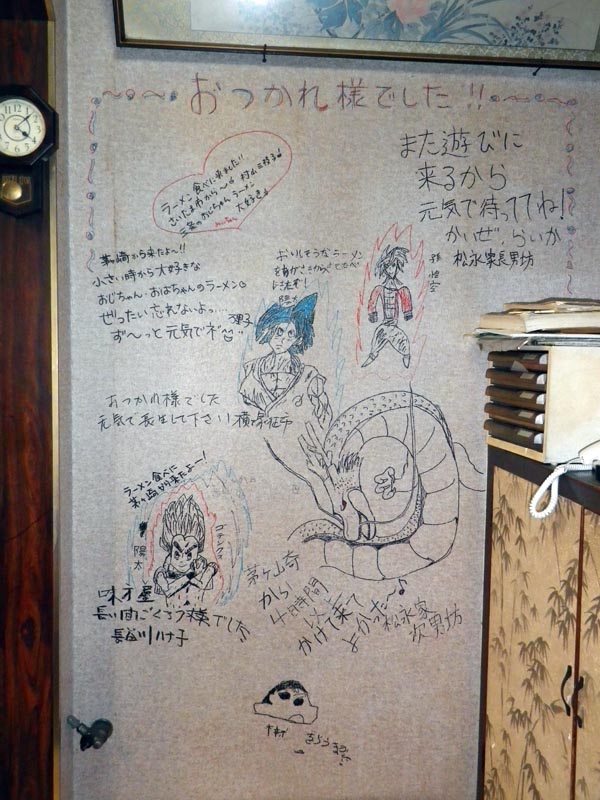 おつかれ様でした!!
また遊びに
来るから
元気で待っててね!
かいぜ らいか
松永家長男坊
ラーメン食べに来れた!!
さいたまわから〜♪ 村山三枝子
三条のおじちゃん ラーメン
大好き♡
茅ヶ崎から来たよ〜!!
小さい時から大好きな
おじちゃん・おばちゃんのラーメン♡
ぜったい忘れないよ…
ず〜っと元気でネ
おいしそうなラーメン
陽太
孫悟空
おつかれ様でした
元気で長生して下さい 横須賀市
ラーメン食べに
茅ヶ崎から来たよー!
陽太
ゴテンクス
味才屋
長い間ごくろう様でした
長谷川ハナ子
茅ヶ崎
から
4時間
以上
かけて来て
よかった〜♪
松永家
次男坊